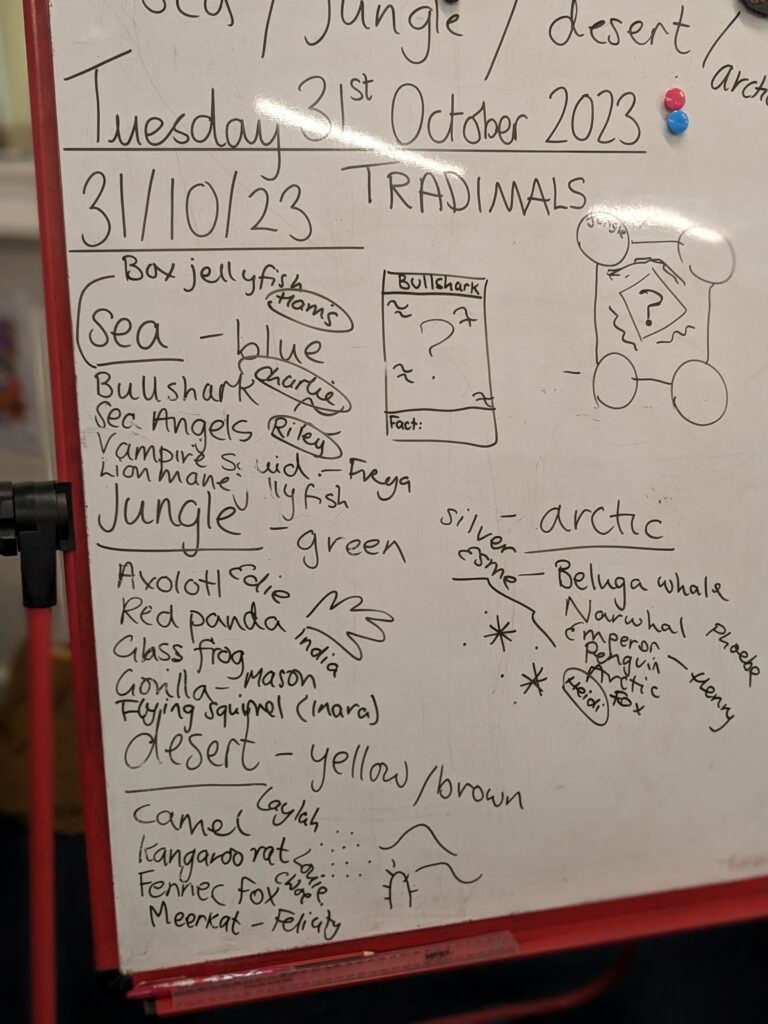 sea / jungle / desert /
arctic
Tuesday 31st October 2023
31/10/23 TRADIMALS
Box jellyfish
Sea - blue
Bullshark Charlie
Sea Angels Riley
Vampire Squid - Freya
Lionmane jellyfish
Bullshark
?
Fact:
Jungle
?
Jungle - green
Axolotl Edie
Red panda
India
Glass frog
Gorilla - Mason
Flying squirrel (Inara)
silver - arctic
Esme - Beluga whale
Narwhal Phoebe
Emperor
Penguin - Henry
Arctic
Fox
Heidi
desert - yellow/brown
Camel Laylah
Kangaroo rat Louie
Fennec Fox Chloe
Meerkat - Felicity